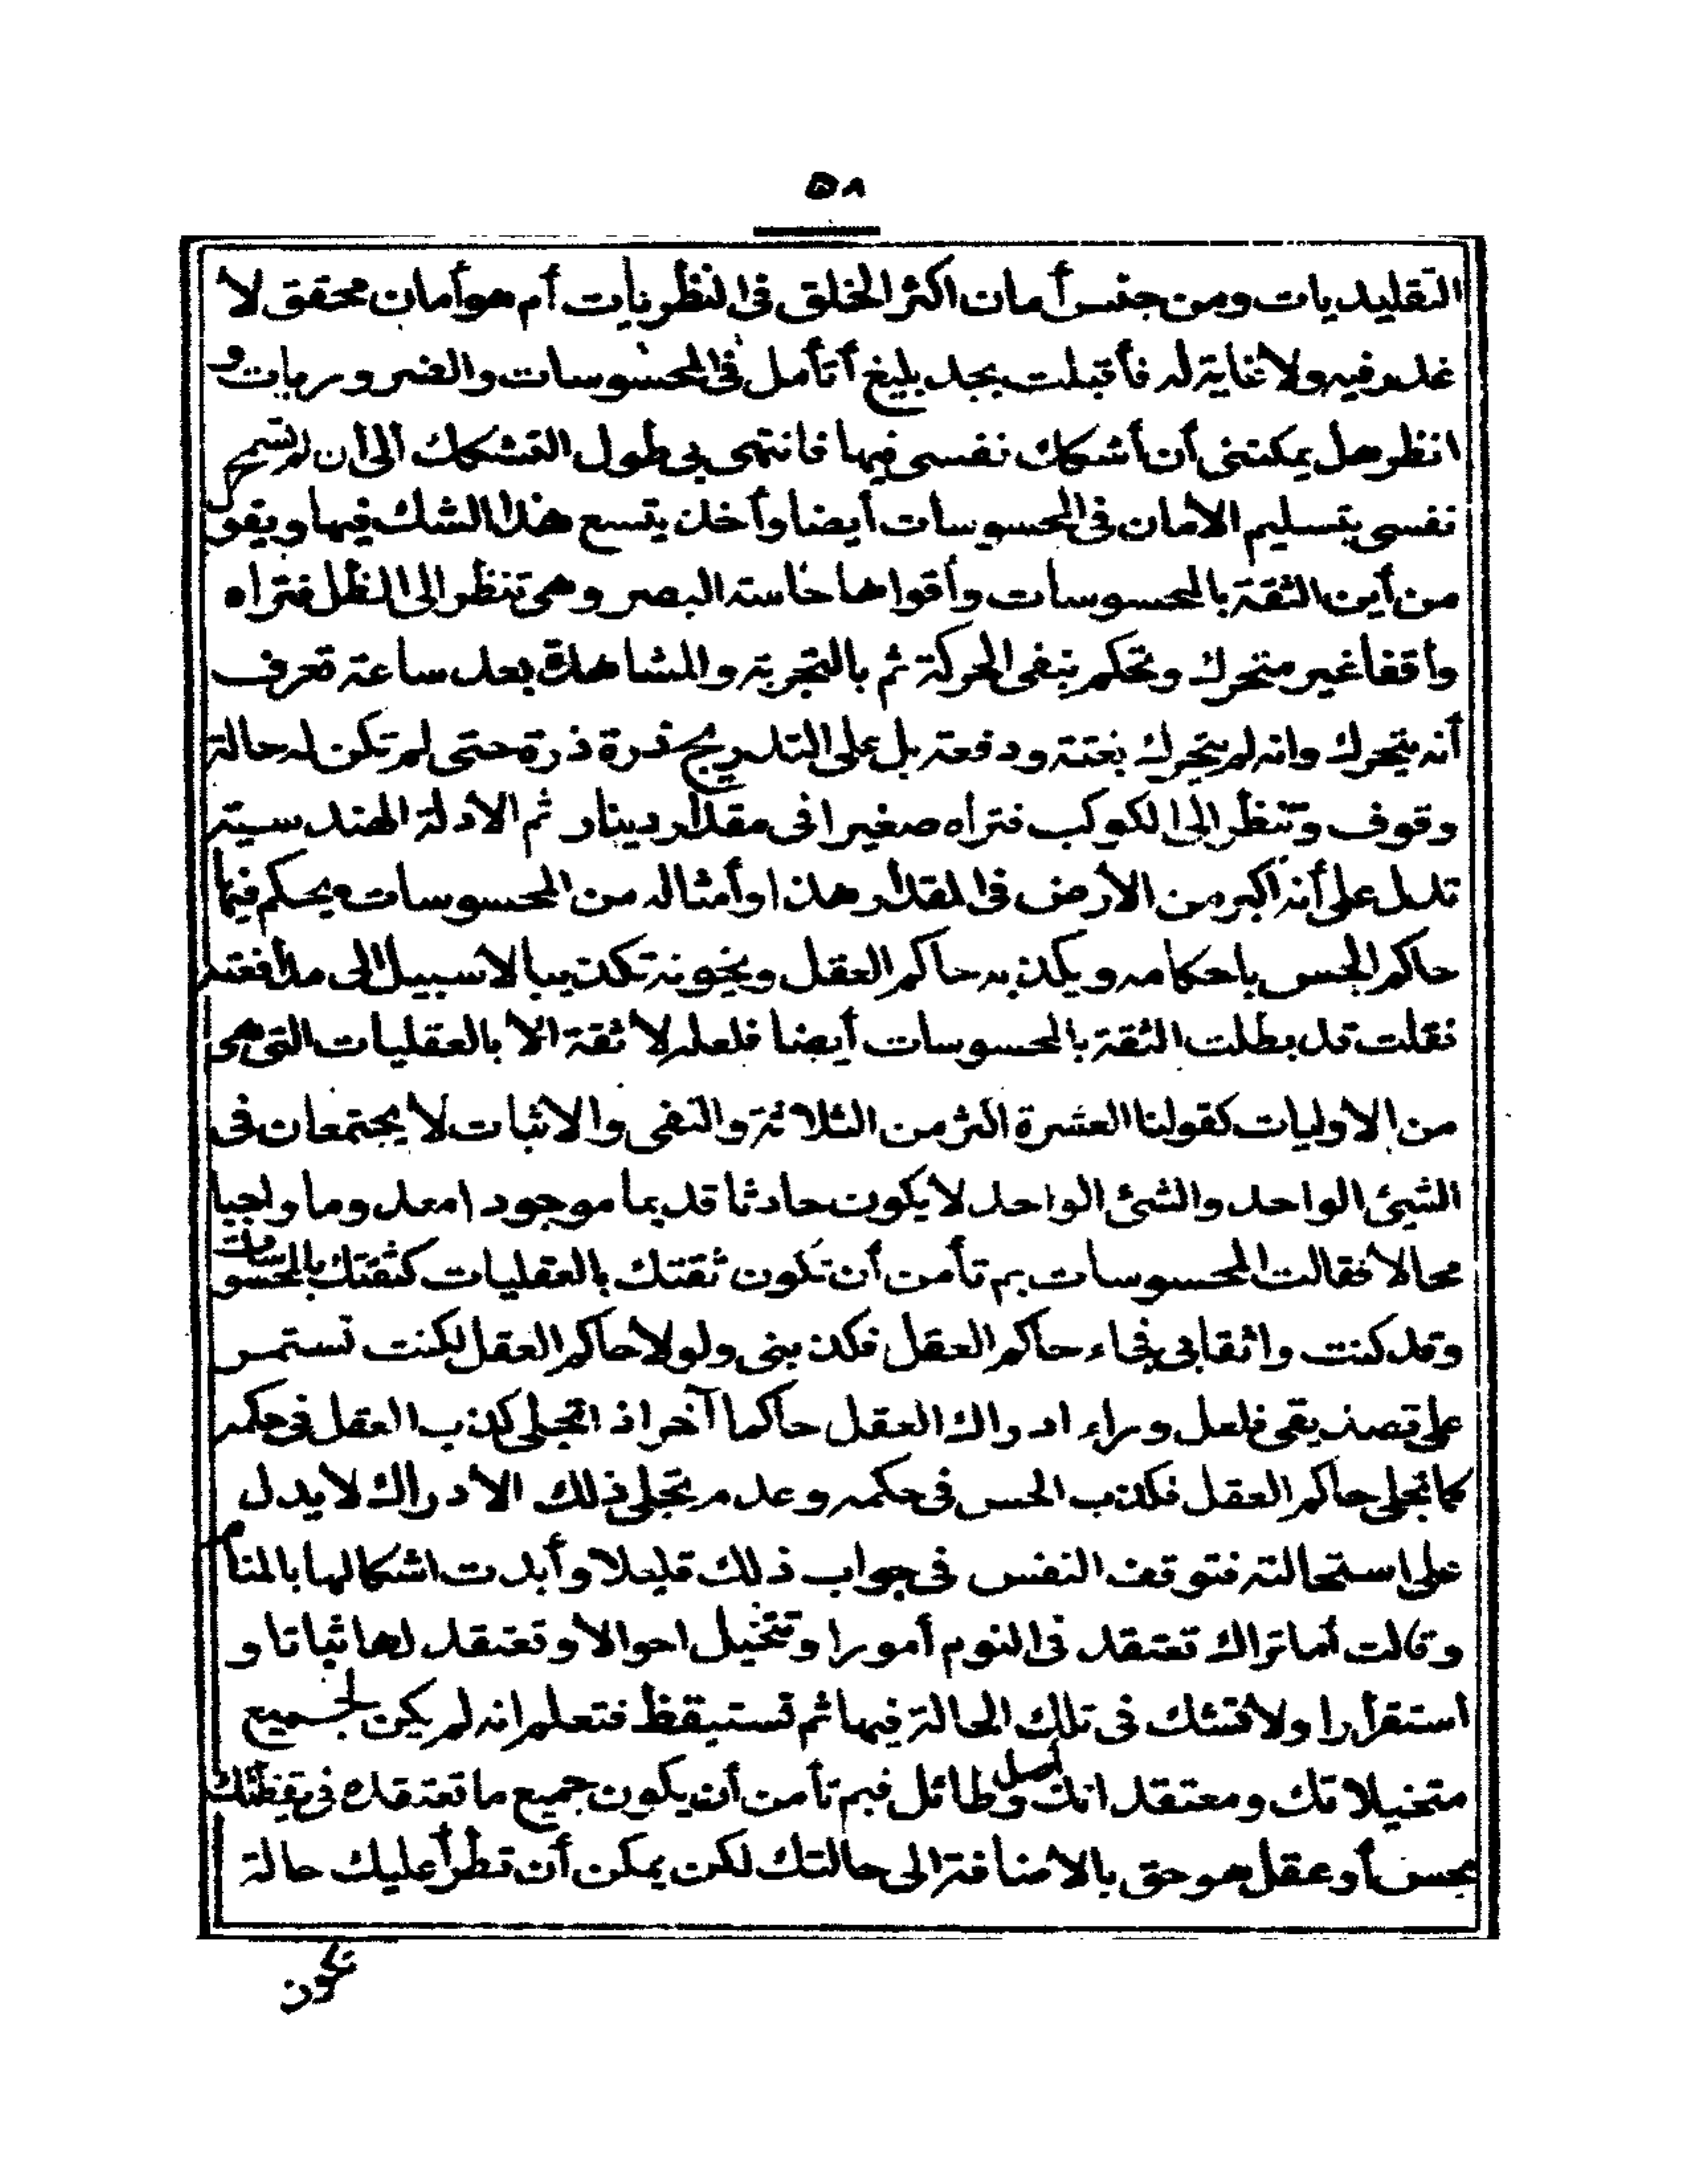 ٥٨
التقليديات ومن جنس أمان اكثر الخلق فى النظريات أم هو أمان محقق لا
غدر فيه ولا غاية له فأقبلت بجد بليغ أتأمل فى المحسوسات والضروريات و
انظر هل يمكننى أن أشكك نفسى فيها فانتهى بى طول التشكك الى أن لم تسمح
نفسى بتسليم الأمان فى المحسوسات أيضا وأخذ يتسع هذا الشك فيها ويقول
من أين الثقة بالمحسوسات وأقواها حاسة البصر وهى تنظر الى الظل فتراه
واقفا غير متحرك وتحكم بنفى الحركة ثم بالتجربة والمشاهدة بعد ساعة تعرف
أنه يتحرك وانه لم يتحرك بغتة ودفعة بل على التدريج ذرة ذرة حتى لم تكن له حالة
وقوف وتنظر الى الكوكب فتراه صغيرا فى مقدار دينار ثم الأدلة الهندسية
تدل على أنه اكبر من الأرض فى المقدار هذا وأمثاله من المحسوسات يحكم فيها
حاكم الحس باحكامه ويكذبه حاكم العقل ويخونه تكذيبا لا سبيل الى مدافعته
فقلت قد بطلت الثقة بالمحسوسات أيضا فلعله لا ثقة الا بالعقليات التى هى
من الاوليات كقولنا العشرة اكثر من الثلاثة والنفى والاثبات لا يجتمعان فى
الشيئ الواحد والشئ الواحد لا يكون حادثا قديما موجودا معدوما واجبا
محالا فقالت المحسوسات بم تأمن أن تكون ثقتك بالعقليات كثقتك بالمحسوسات
وقد كنت واثقا بى فجاء حاكم العقل فكذبنى ولولا حاكم العقل لكنت تستمر
على تصديقى فلعل وراء ادراك العقل حاكما آخر اذا تجلى كذب العقل فى حكمه
كما تجلى حاكم العقل فكذب الحس فى حكمه وعدم تجلى ذلك الأدراك لا يدل
على استحالته فتوقف النفس فى جواب ذلك قليلا وأبدت اشكالها بالمنام
وقالت أما تراك تعتقد فى النوم أمورا وتتخيل احوالا وتعتقد لها ثباتا و
استقرارا ولا تشك فى تلك الحالة فيها ثم تستيقظ فتعلم انه لم يكن لجميع
متخيلاتك ومعتقداتك أصل وطائل فبم تأمن أن يكون جميع ما تعتقده فى يقظتك
بحس أو عقل هو حق بالأضافة الى حالتك لكن يمكن أن تطرأ عليك حالة
تكون